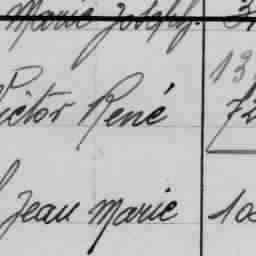 Marie Joseph.
13
Victor René 72
Jean Marie 10